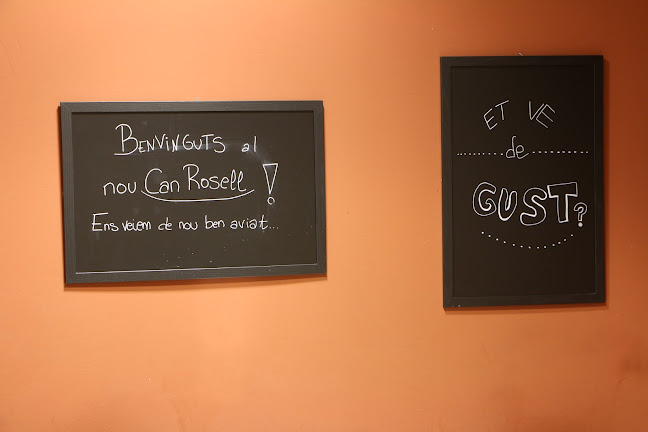 BENVINGUTS al
nou Can Rosell!
Ens veiem de nou ben aviat...
ET VE
de
GUST?